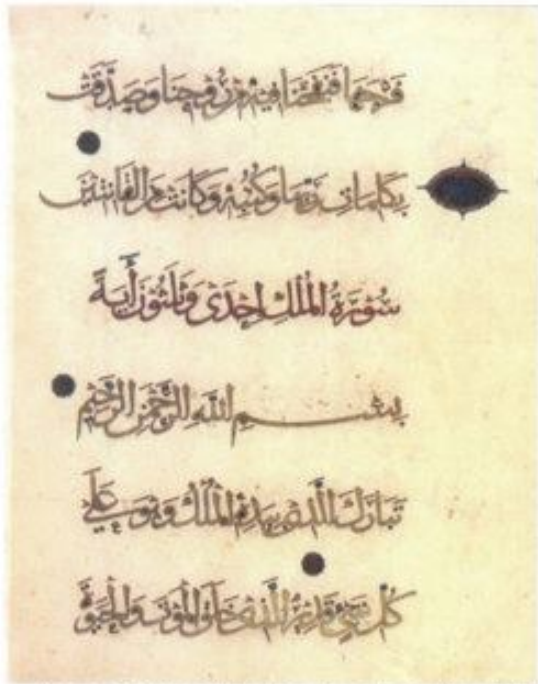 فَرْجَهَا فَنَفَخْنَا فِيهِ مِنْ رُوحِنَا وَصَدَّقَتْ
بِكَلِمَاتِ رَبِّهَا وَكُتُبِهِ وَكَانَتْ مِنَ الْقَانِتِينَ
سُوْرَةُ الْمُلْكِ اِحْدَى وَثَلَثُوْنَ أٰيَةً
بِسْمِ اللَّهِ الرَّحْمَنِ الرَّحِيمِ
تَبَارَكَ الَّذِي بِيَدِهِ الْمُلْكُ وَهُوَ عَلَى
كُلِّ شَيْءٍ قَدِيرٌ الَّذِي خَلَقَ الْمَوْتَ وَالْحَيٰوةَ